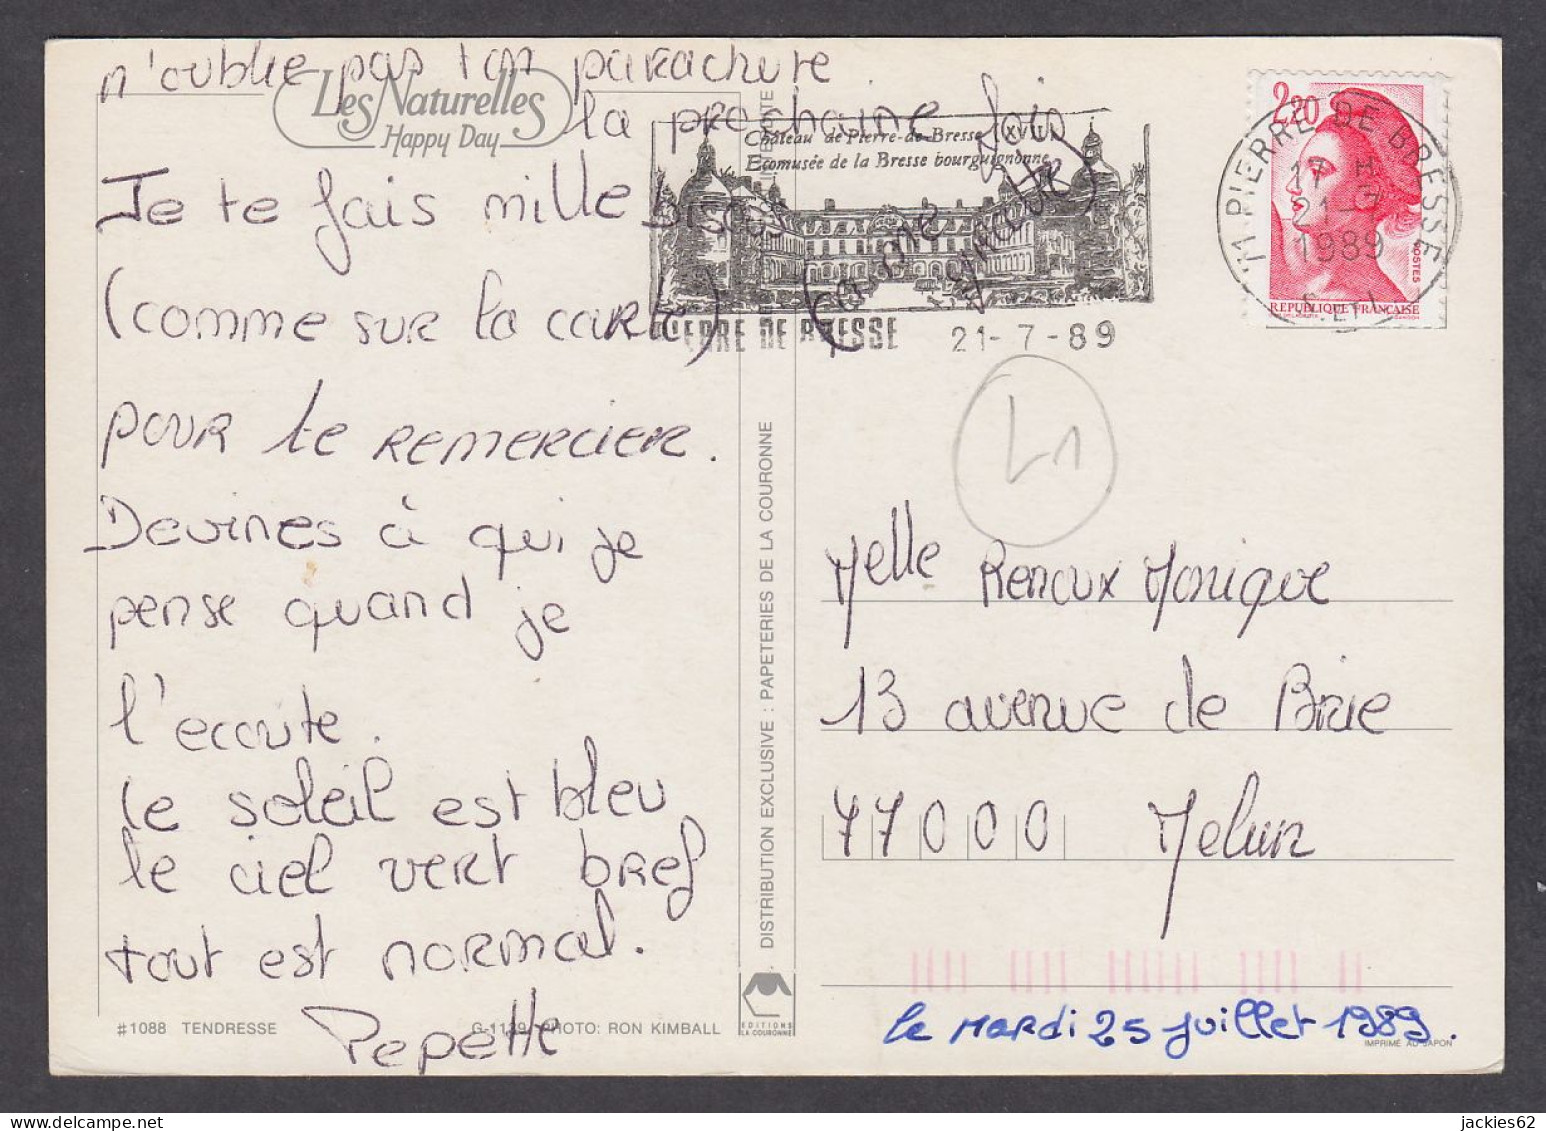 n'oublie pas ton parachute
la prochaine fois
Les Naturelles
Happy Day
Je te fais mille bisous
(comme sur la carte)
pour te remercier.
Devines à qui je
pense quand je
l'ecoute.
le soleil est bleu
le ciel vert bref
tout est normal.
Pepette
#1088 TENDRESSE
G-1129 PHOTO: RON KIMBALL
DISTRIBUTION EXCLUSIVE : PAPETERIES DE LA COURONNE
EDITIONS
LA COURONNE
Château de Pierre-de-Bresse XVII
Ecomusée de la Bresse bourguignonne
PIERRE DE BRESSE
21-7-89
71 PIERRE DE BRESSE
17 H
21-7
1989
2,20
POSTES
REPUBLIQUE FRANÇAISE
Melle Renoux Monique
13 avenue de Brie
77000 Melun
le Mardi 25 juillet 1989.
IMPRIMÉ AU JAPON
jackies62